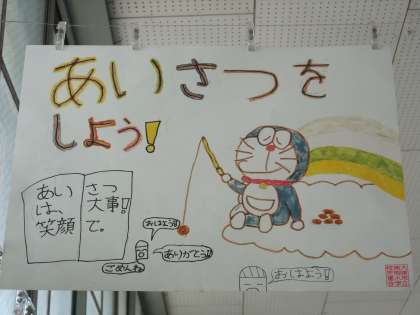 あいさつを
しよう!
あいさつ
は、大事!!
笑顔で。
おはよう!!
ありがとう!!
ごめんね
おはよう!!